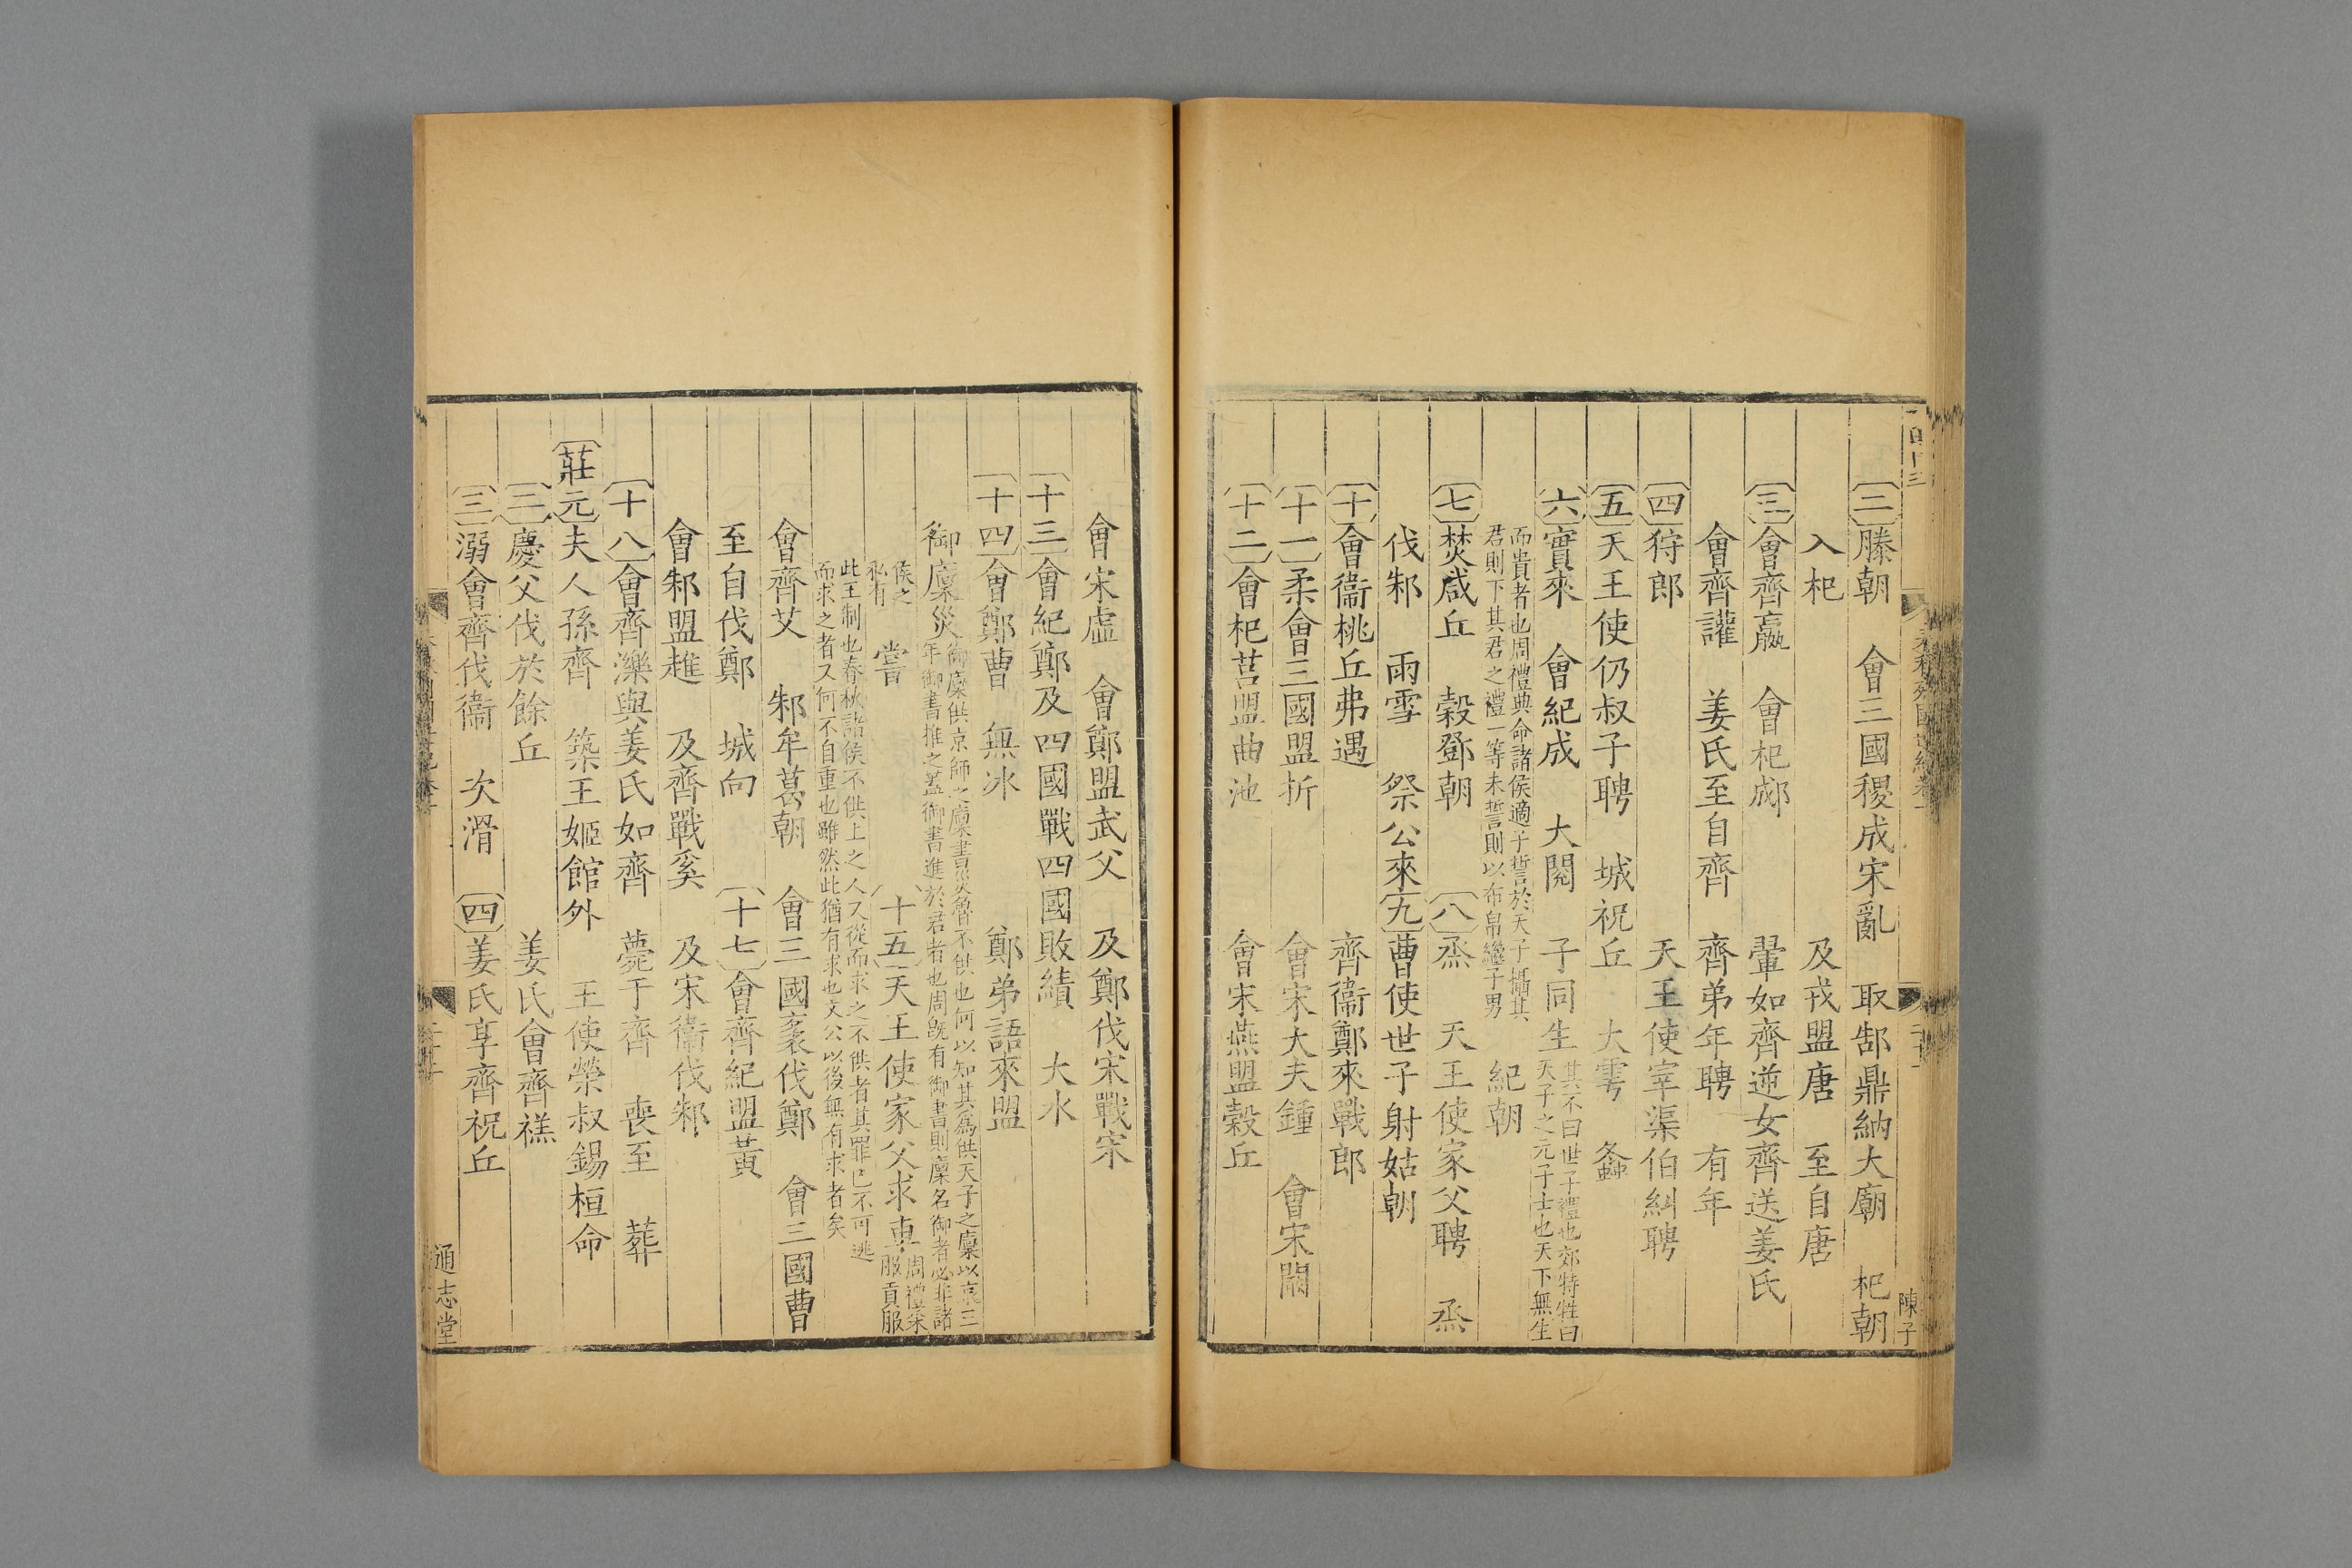 二 滕朝 會三國稷成宋亂 取郜鼎納大廟 杞朝
入杞 及戎盟唐 至自唐
三 會齊嬴 會杞郕 翬如齊逆女齊送姜氏
會齊讙 姜氏至自齊 齊弟年聘 有年
四 狩郎 天王使宰渠伯糾聘
五 天王使仍叔子聘 城祝丘 大雩 螽
六 實來 會紀成 大閱 子同生 其不曰世子禮也郊特牲曰
天子之元子士也天下無生
而貴者也周禮典命諸侯適子誓於天子攝其
君則下其君之禮一等未誓則以布帛繼子男 紀朝
七 焚咸丘 穀鄧朝 八 烝 天王使家父聘 烝
伐邾 雨雪 祭公來 九 曹使世子射姑朝
十 會衞桃丘弗遇 齊衞鄭來戰郎
十一 柔會三國盟折 會宋大夫鍾 會宋闞
十二 會杞莒盟曲池 會宋燕盟穀丘
陳子
會宋虛 會鄭盟武父 及鄭伐宋戰宋
十三 會紀鄭及四國戰四國敗績 大水
十四 會鄭曹 無冰 鄭弟語來盟
御廩災 御廩供京師之廩書災魯不供也何以知其爲供天子之廩以哀三
年御書推之蓋御書進於君者也周旣有御書則廩名御者必非諸
侯之
私有 嘗 十五 天王使家父求車 周禮采
服貢服
此王制也春秋諸侯不供上之人又從而求之不供者其罪已不可逃
而求之者又何不自重也雖然此猶有求也文公以後無有求者矣
會齊艾 邾牟葛朝 會三國袲伐鄭 會三國曹
至自伐鄭 城向 十七 會齊紀盟黃
會邾盟趡 及齊戰奚 及宋衞伐邾
十八 會齊濼與姜氏如齊 薨于齊 喪至 葬
莊元 夫人孫齊 築王姬館外 王使榮叔錫桓命
二 慶父伐於餘丘 姜氏會齊禚
三 溺會齊伐衞 次滑 四 姜氏享齊祝丘
通志堂